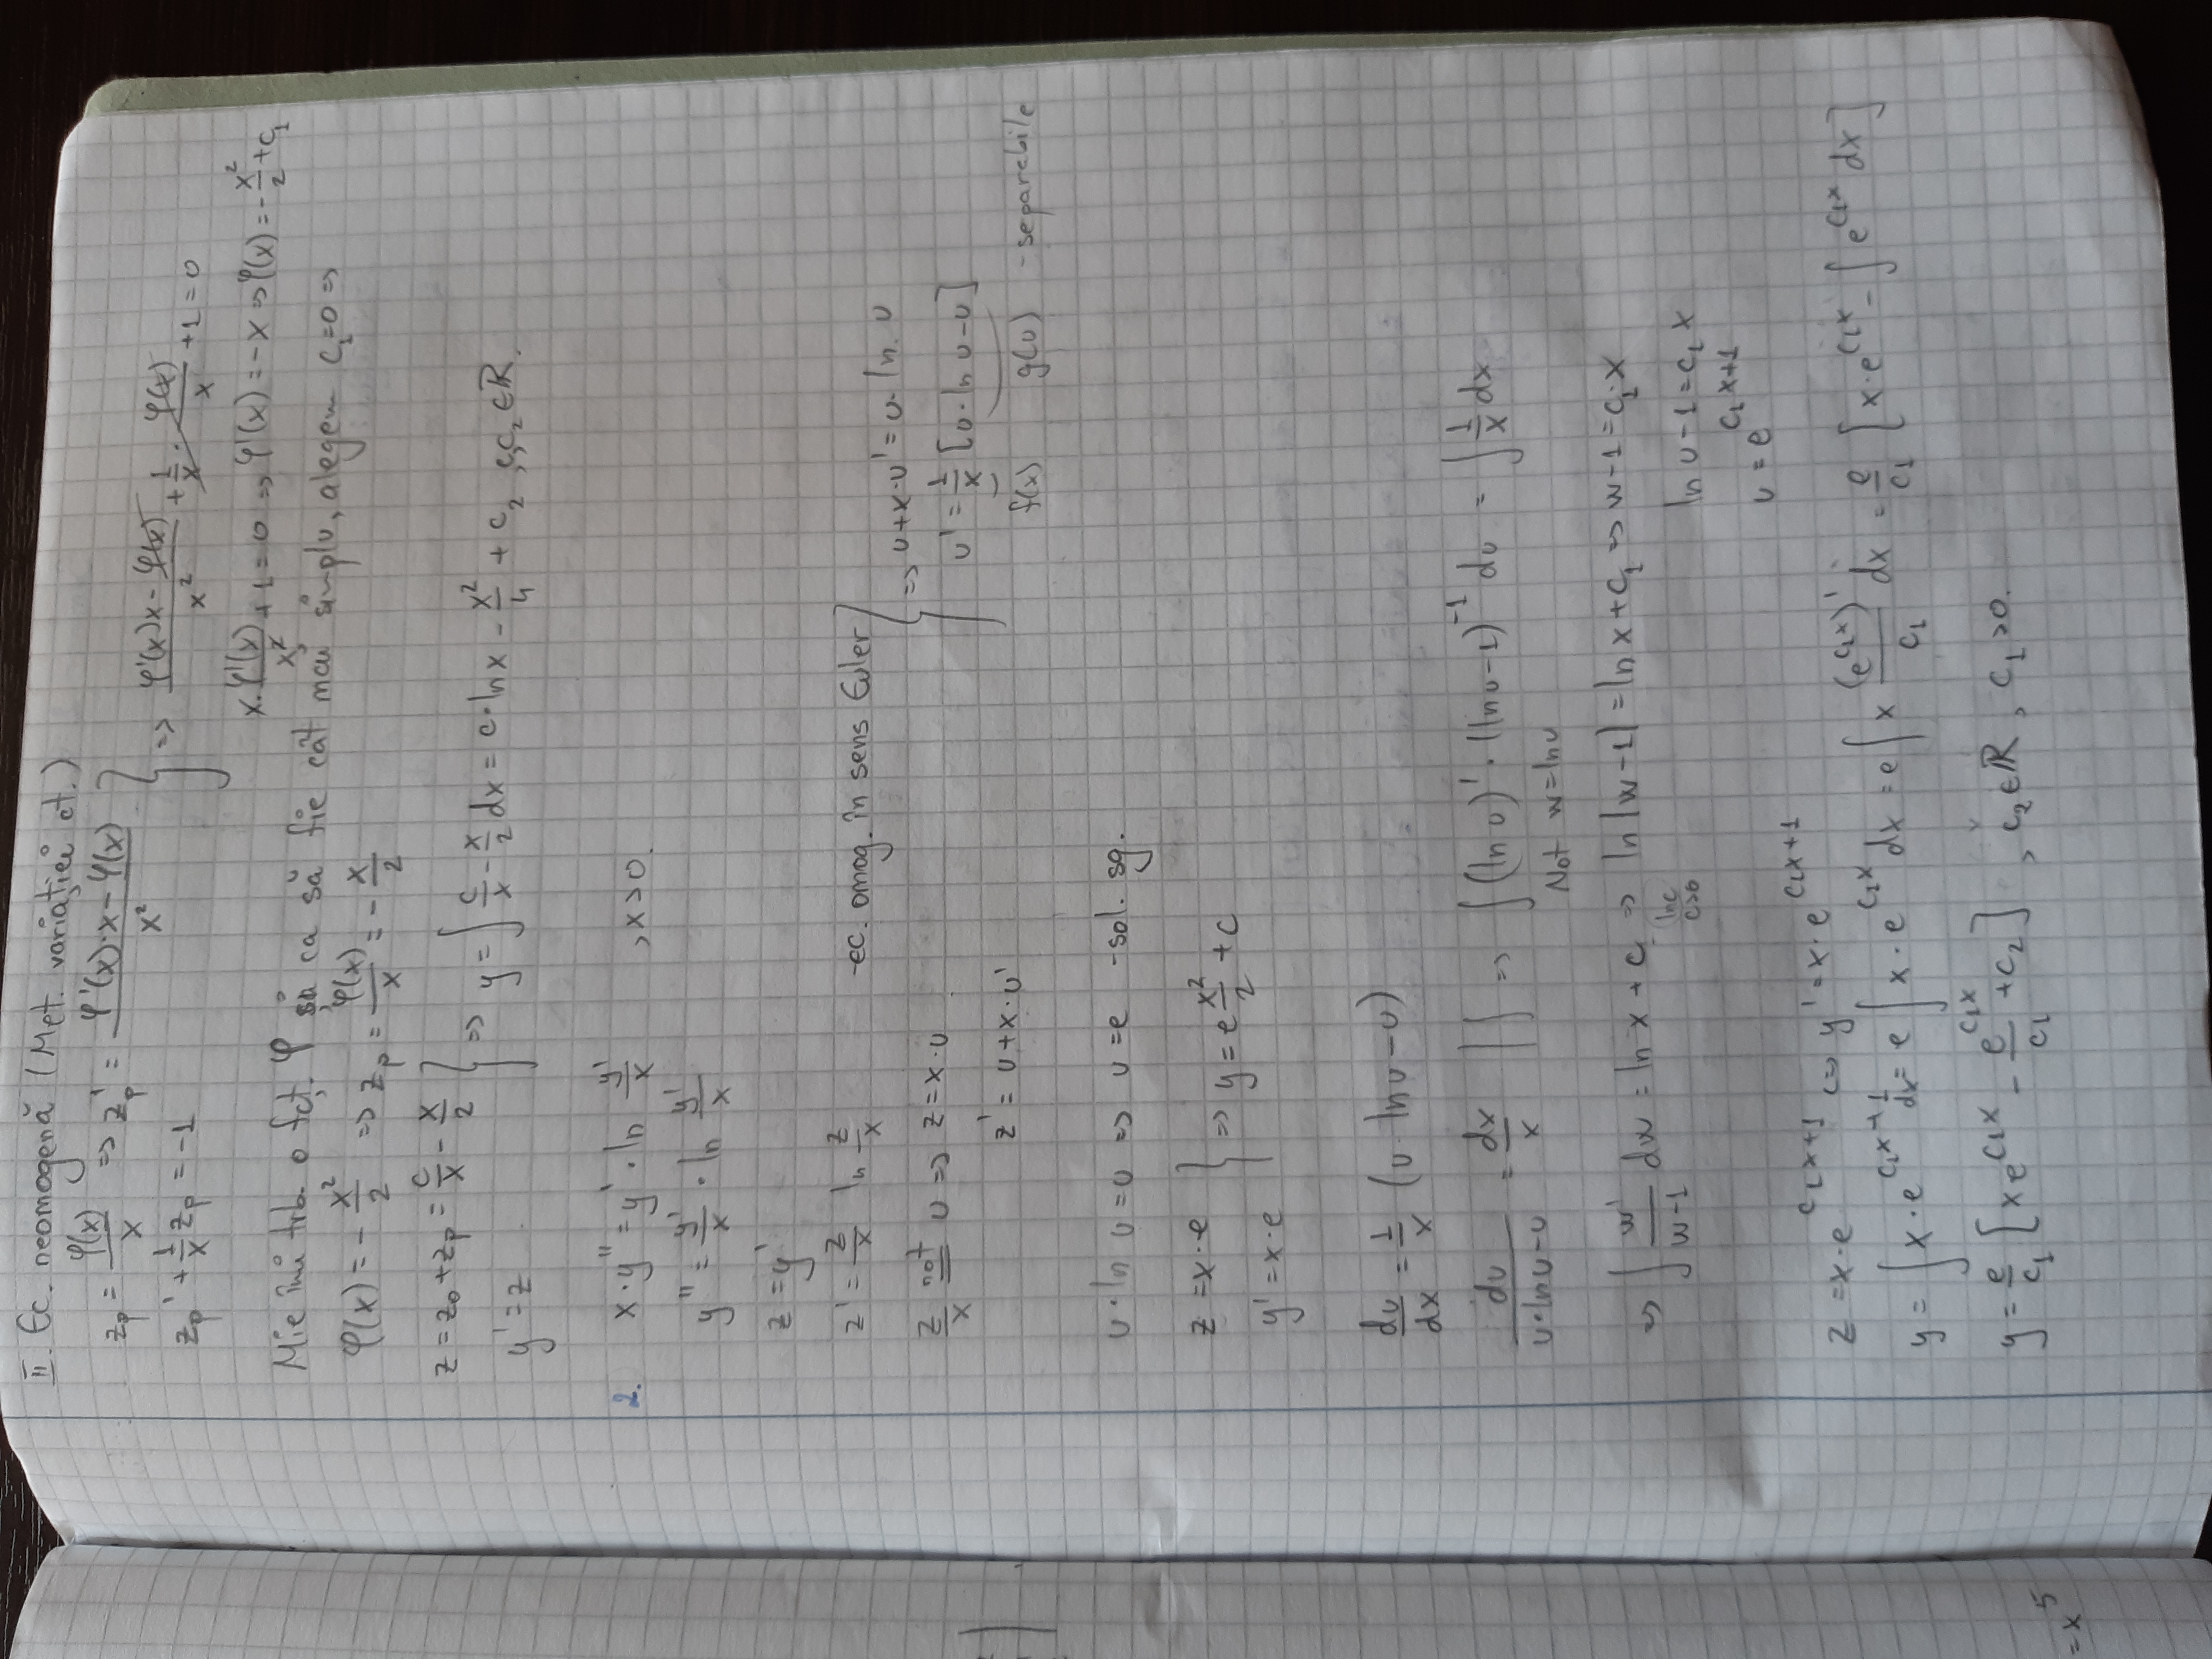 II. Ec. neomogenă (Met. variației ct.)
z_p = φ(x)/x => z_p' = (φ'(x)·x − φ(x))/x²
z_p' + 1/x z_p = −1
=> (φ'(x)x − φ(x))/x² + 1/x · φ(x)/x + 1 = 0
x·φ'(x)/x² + 1 = 0 => φ'(x) = −x => φ(x) = −x²/2 + c₁
Mie îmi trb. o fcț. φ și ca să fie cât mai simplu, alegem c₁=0 =>
φ(x) = −x²/2 => z_p = φ(x)/x = −x/2
z = z₀ + z_p = c/x − x/2
y' = z
=> y = ∫ c/x − x/2 dx = c·ln x − x²/4 + c₂, c,c₂ ∈ ℝ.
2. x·y'' = y'·ln y'/x , x>0.
y'' = y'/x · ln y'/x
z = y'
z' = z/x ln z/x -ec. omog. în sens Euler
z/x not= u => z = x·u
z' = u + x·u'
=> u + x·u' = u·ln. u
u' = 1/x [u·ln u − u]
f(x) g(u) -separabile
u·ln u = u => u = e -sol. sg.
z = x·e
y' = x·e
=> y = e x²/2 + c
du/dx = 1/x (u·ln u − u)
du/(u·ln u − u) = dx/x |∫ => ∫(ln u)'·(ln u − 1)⁻¹ du = ∫ 1/x dx
Not w = ln u
=> ∫ w'/(w−1) dw = ln x + c => ln|w−1| = ln x + c₁ => w−1 = c₁·x
ln c
c>0
ln u − 1 = c₁ x
u = e^(c₁x+1)
z = x·e^(c₁x+1) <=> y' = x·e^(c₁x+1)
y = ∫ x·e^(c₁x+1) dx = e ∫ x·e^(c₁x) dx = e ∫ x (e^(c₁x))'/c₁ dx = e/c₁ [x·e^(c₁x) − ∫ e^(c₁x) dx]
y = e/c₁ [x e^(c₁x) − e^(c₁x)/c₁ + c₂] , c₂ ∈ ℝ, c₁ > 0.
= x⁵